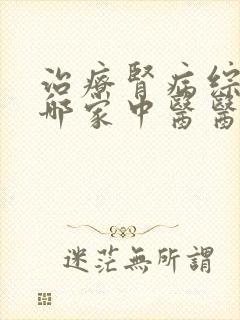 治療腎病綜
哪家中醫醫
迷茫無所謂